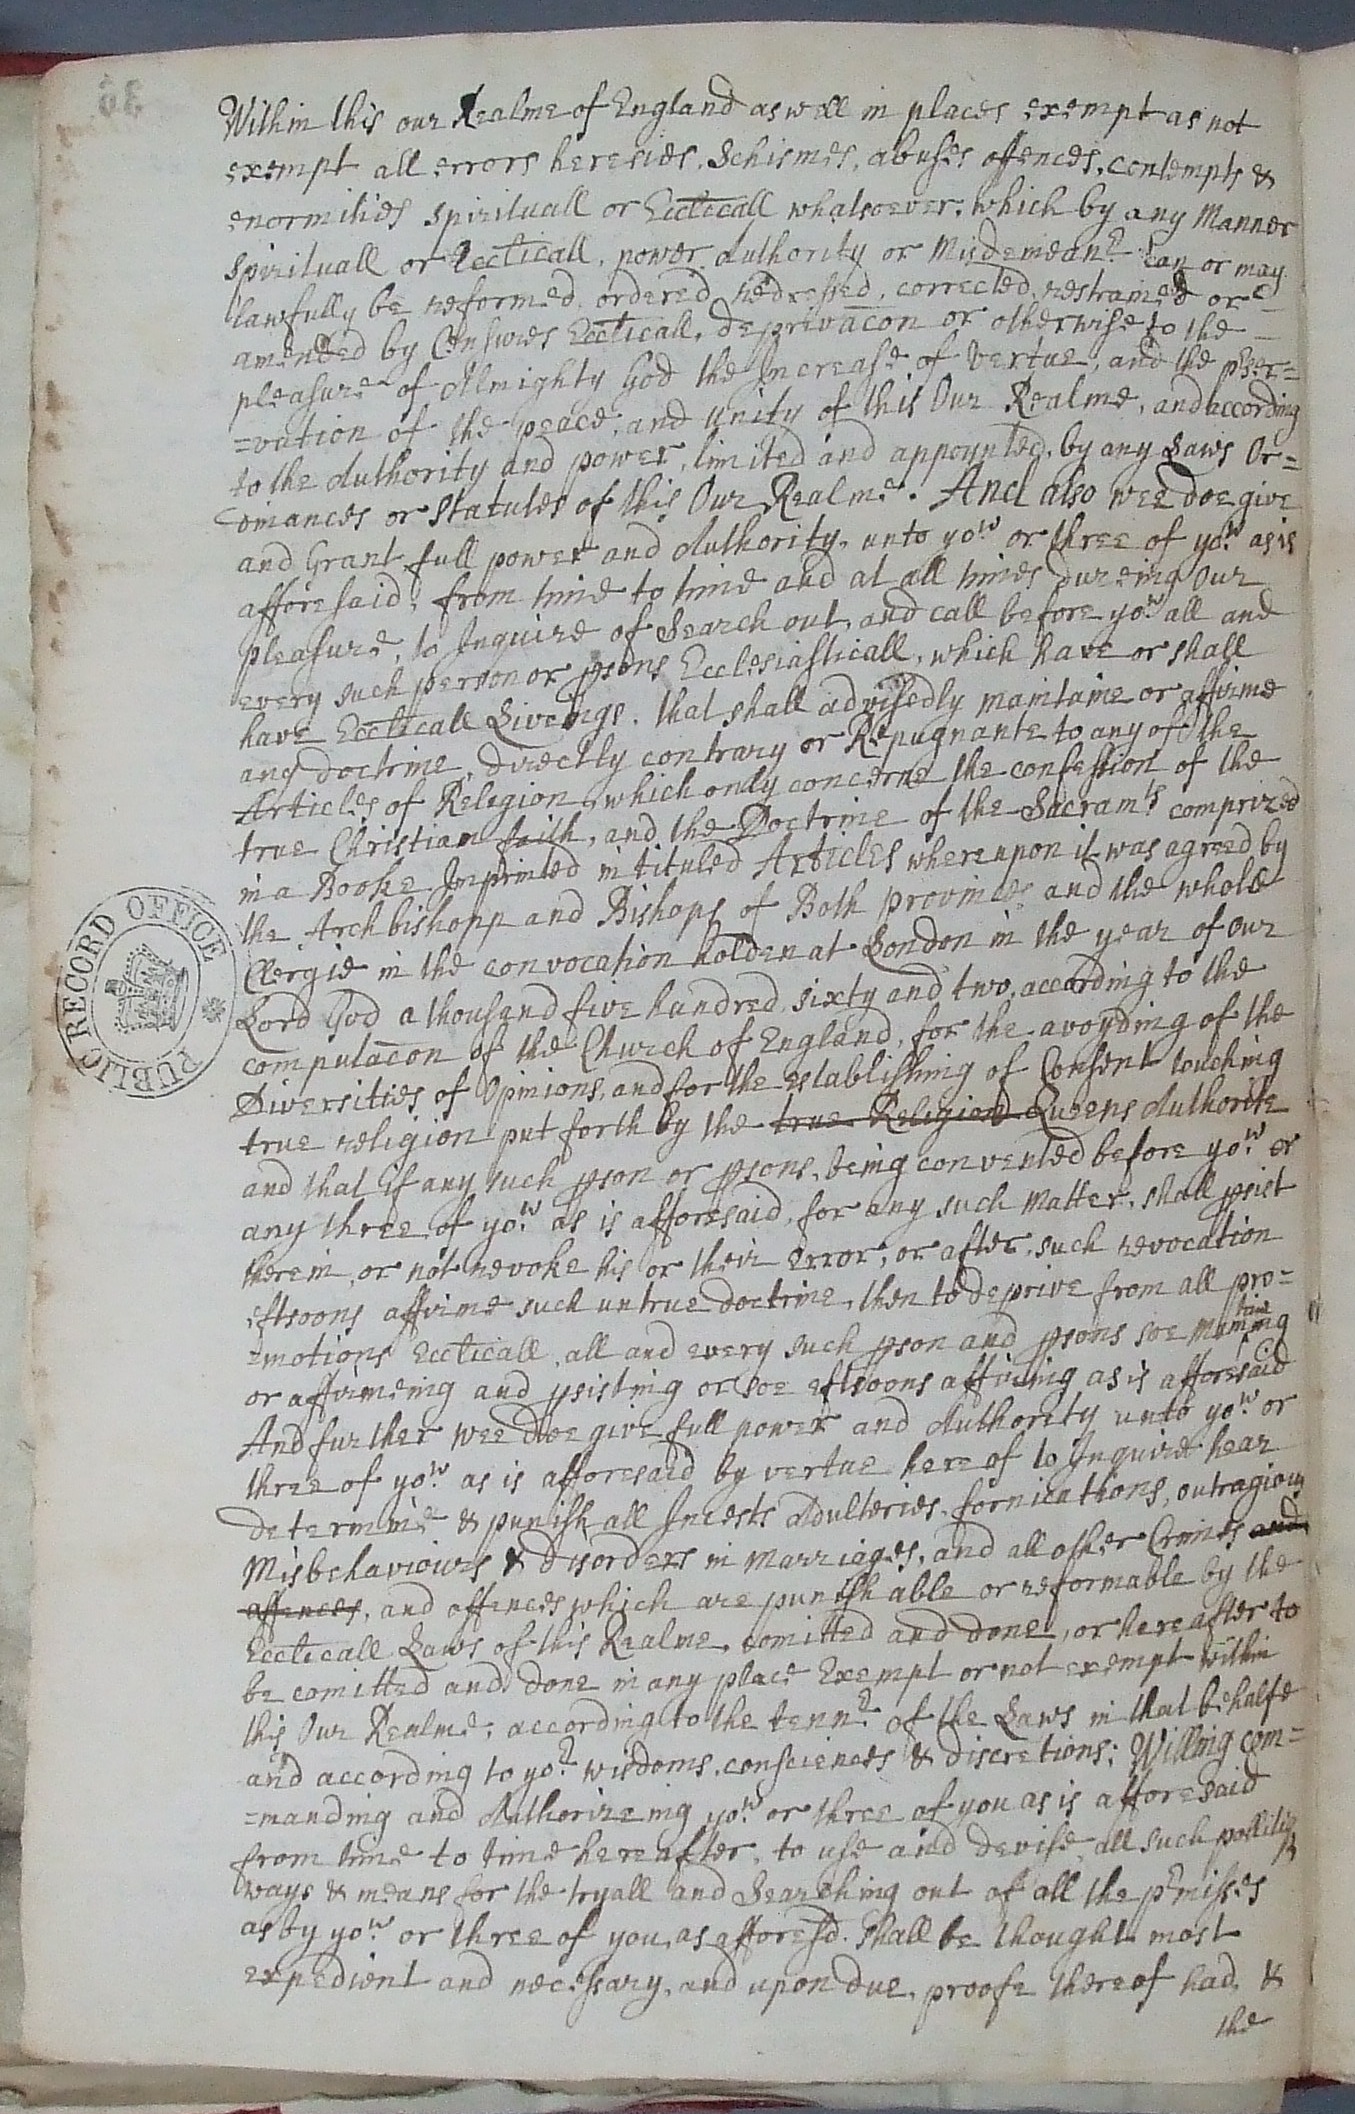 Within this our Realme of England as well in places exempt as not
exempt all errors heresies, Schismes, abuses offences, contempts &
enormities spirituall or Eccticall whatsoever, which by any Manner
spirituall or Eccticall, power Authority or Misdemeanr. Can or may
lawfully be reformed, ordered redressed, corrected, restrained or
amended by Censures Eccticall, deprivacon or otherwise to the
pleasure of Almighty God the Increase of Vertue, and the pser=
=vation of the peace, and unity of this Our Realme, and according
to the Authority and power, limited and appoynted, by any Laws Or=
dinances or Statutes of this Our Realme. And also wee doe give
and Grant full power and Authority, unto yow. or three of yow. as is
afforesaid, from time to time and at all times dureing Our
pleasure, to Inquire of Search out, and call before yow. all and
every such person or psons Ecclesiasticall, which have or shall
have Eccticall Liveings. that shall advisedly maintaine or affirme
any doctrine, directly contrary or Repugnante to any of the
Articles of Relegion, which only concerne the confession of the
true Christian faith, and the Doctrine of the Sacramts comprized
in a Booke Imprinted intituled Articles whereupon it was agreed by
the Archbishopp and Bishops of Both provinces and the whole
Clergie in the convocation holden at London in the year of Our
Lord God a thousand five hundred, sixty and two, according to the
computacon of the Church of England, for the avoyding of the
Diversities of Opinions, and for the establishing of Consent touching
true religion put forth by the true Religion Queens Authorite
and that if any such pson or psons, being convented before yow. or
any three of yow. as is afforesaid, for any such Matter, shall psist
therein, or not revoke his or their error, or after, such revocation
eftsoons affirme such untrue doctrine, then to deprive from all pro=
=motions Eccticall, all and every such pson and psons soe maintaineing
or affirmeing and psisting or soe eftsoons affirming as is afforesaid
And further wee doe give full power and Authority unto yow. or
three of yow. as is afforesaid by vertue here of to Inquire hear
determine & punish all Incests Adulteries, fornications, outragious
Misbehaviours & disorders in Marriages, and all other Crimes and
offences, and offences which are punishable or reformable by the
Eccticall Laws of this Realme, comitted and done, or hereafter to
be comitted and done in any place Exempt or not exempt within
this Our Realme, according to the tennr. of the Laws in that behalfe
and according to yor. wisdoms, consciences & discretions; Willing com=
=manding and Authorizeing yow. or three of you as is afforesaid
from time to time hereafter, to use and devise, all such pollitiq
ways & means for the tryall and Searching out of all the prmisses
as by yow. or three of you, as afforesd. shall be thought most
expedient and necessary, and upon due, proofe thereof had, &
the
PUBLIC RECORD OFFICE